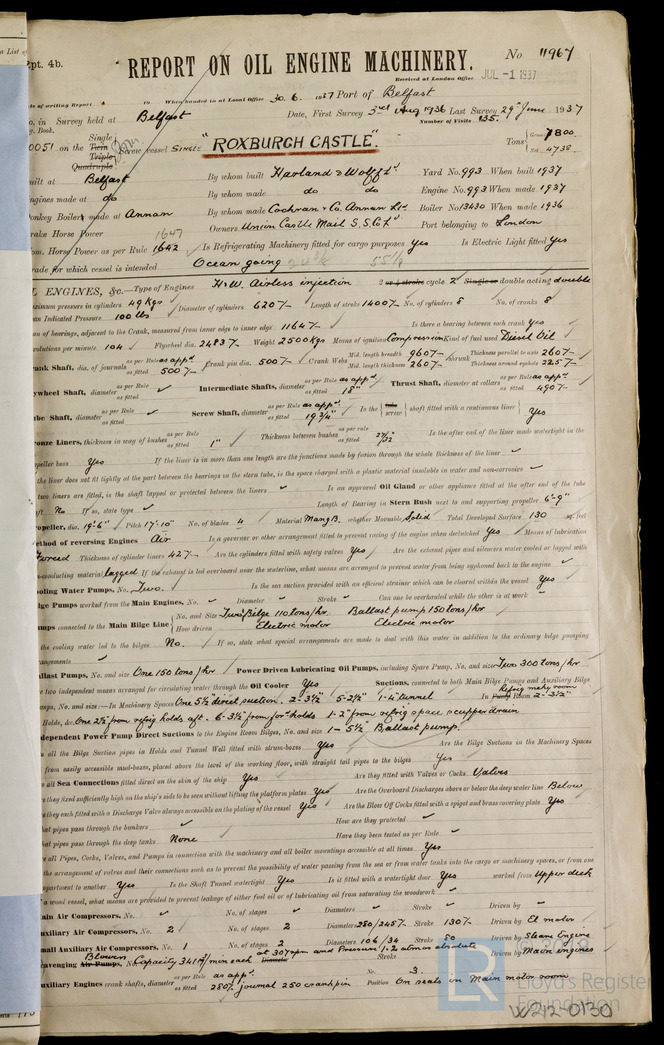 Rpt. 4b.
REPORT ON OIL ENGINE MACHINERY.
No. 11967
Received at London Office JUL -1 1937
of writing Report 19 When handed in at Local Office 30.6. 1937 Port of Belfast
in Survey held at Belfast Date, First Survey 3rd Aug 1936 Last Survey 29th June 1937
Book. Number of Visits 135.
on the Single Twin Triple Quadruple Screw vessel SINGLE "ROXBURGH CASTLE". Tons Gross 7800 Net 4738.
built at Belfast By whom built Harland & Wolff Ltd Yard No. 993 When built 1937
Engines made at do By whom made do do Engine No. 993 When made 1937
Donkey Boilers made at Annan By whom made Cochran & Co. Annan Ltd Boiler No. 13430 When made 1936
Brake Horse Power 1647 Owners Union Castle Mail S.S. Co Ltd Port belonging to London
Nom. Horse Power as per Rule 1642 Is Refrigerating Machinery fitted for cargo purposes Yes Is Electric Light fitted Yes
Trade for which vessel is intended Ocean going 55 1/8
OIL ENGINES, &c.—Type of Engines H&W. Airless injection 2 or 4 stroke cycle 2 Single or double acting double
Maximum pressure in cylinders 49 Kgs Diameter of cylinders 620 Length of stroke 1400 No. of cylinders 8 No. of cranks 8
Mean Indicated Pressure 100 lbs
Span of bearings, adjacent to the Crank, measured from inner edge to inner edge 1164 Is there a bearing between each crank Yes
Revolutions per minute 104 Flywheel dia. 2483 Weight 2500 Kgs Means of ignition Compression Kind of fuel used Diesel Oil
Crank Shaft, dia. of journals as per Rule as appd as fitted 500 Crank pin dia. 500 Crank Webs Mid. length breadth 960 Mid. length thickness 260 shrunk Thickness parallel to axis 260 Thickness around eyehole 225
Flywheel Shaft, diameter as per Rule as fitted Intermediate Shafts, diameter as per Rule as appd as fitted 18" Thrust Shaft, diameter at collars as per Rule as appd as fitted 490
Tube Shaft, diameter as per Rule as fitted Screw Shaft, diameter as per Rule as appd as fitted 19 3/4" Is the tube screw shaft fitted with a continuous liner Yes
Bronze Liners, thickness in way of bushes as per Rule as fitted 1" Thickness between bushes as per rule as fitted 27/32" Is the after end of the liner made watertight in the
propeller boss Yes If the liner is in more than one length are the junctions made by fusion through the whole thickness of the liner
the liner does not fit tightly at the part between the bearings in the stern tube, is the space charged with a plastic material insoluble in water and non-corrosive
two liners are fitted, is the shaft lapped or protected between the liners Is an approved Oil Gland or other appliance fitted at the after end of the tube
shaft No If so, state type Length of Bearing in Stern Bush next to and supporting propeller 6'-9"
Propeller, dia. 19'-6" Pitch 17'-10" No. of blades 4 Material Mang B. whether Movable Solid Total Developed Surface 130 sq. feet
Method of reversing Engines Air Is a governor or other arrangement fitted to prevent racing of the engine when declutched Yes Means of lubrication
Forced Thickness of cylinder liners 42 Are the cylinders fitted with safety valves Yes Are the exhaust pipes and silencers water cooled or lagged with
non-conducting material lagged If the exhaust is led overboard near the waterline, what means are arranged to prevent water from being syphoned back to the engine
Cooling Water Pumps, No. Two. Is the sea suction provided with an efficient strainer which can be cleared within the vessel Yes
Bilge Pumps worked from the Main Engines, No. Diameter Stroke Can one be overhauled while the other is at work
Pumps connected to the Main Bilge Line No. and Size Two Bilge 110 tons/hr. Ballast pump 150 tons/hr
How driven Electric motor Electric motor
the cooling water led to the bilges No. If so, state what special arrangements are made to deal with this water in addition to the ordinary bilge pumping
arrangements
Ballast Pumps, No. and size One 150 tons/hr Power Driven Lubricating Oil Pumps, including Spare Pump, No. and size Two 300 tons/hr
two independent means arranged for circulating water through the Oil Cooler Yes Suctions, connected to both Main Bilge Pumps and Auxiliary Bilge
Pumps, No. and size:—In Machinery Spaces One 5 1/2" direct suction. 2-3 1/2" 5-2 1/4" 1-4" tunnel In Pump Room Refrig mchy room 2-3 1/2"
Holds, &c. One 2 1/2" from refrig holds aft. 6-3 1/2" from for'd holds 1-2" from refrig space scupper drain
Independent Power Pump Direct Suctions to the Engine Room Bilges, No. and size 1-5 1/2" Ballast pump.
all the Bilge Suction pipes in Holds and Tunnel Well fitted with strum-boxes Yes Are the Bilge Suctions in the Machinery Spaces
from easily accessible mud-boxes, placed above the level of the working floor, with straight tail pipes to the bilges Yes
all Sea Connections fitted direct on the skin of the ship Yes Are they fitted with Valves or Cocks Valves
they fixed sufficiently high on the ship's side to be seen without lifting the platform plates Yes Are the Overboard Discharges above or below the deep water line Below
they each fitted with a Discharge Valve always accessible on the plating of the vessel Yes Are the Blow Off Cocks fitted with a spigot and brass covering plate Yes
what pipes pass through the bunkers How are they protected
what pipes pass through the deep tanks None Have they been tested as per Rule
all Pipes, Cocks, Valves, and Pumps in connection with the machinery and all boiler mountings accessible at all times Yes
the arrangement of valves and their connections such as to prevent the possibility of water passing from the sea or from water tanks into the cargo or machinery spaces, or from one
compartment to another Yes Is the Shaft Tunnel watertight Yes Is it fitted with a watertight door Yes worked from Upper deck
a wood vessel, what means are provided to prevent leakage of either fuel oil or of lubricating oil from saturating the woodwork
Main Air Compressors, No. No. of stages Diameters Stroke Driven by
Auxiliary Air Compressors, No. 2 No. of stages 2 Diameters 280/245 Stroke 130 Driven by El motor
Small Auxiliary Air Compressors, No. 1 No. of stages 2 Diameters 106/34 Stroke 50 Driven by Steam Engine
Scavenging Air Pumps, Blowers Capacity /min each at 307 rpm and Pressure 1.2 atmos absolute Diameter Stroke Driven by Main engines
Auxiliary Engines crank shafts, diameter as per Rule as appd. as fitted 280 journal 250 crankpin No. 3. Position On seats in Main motor room
LR
© 2019
Lloyd's Register
Foundation
W212-0130